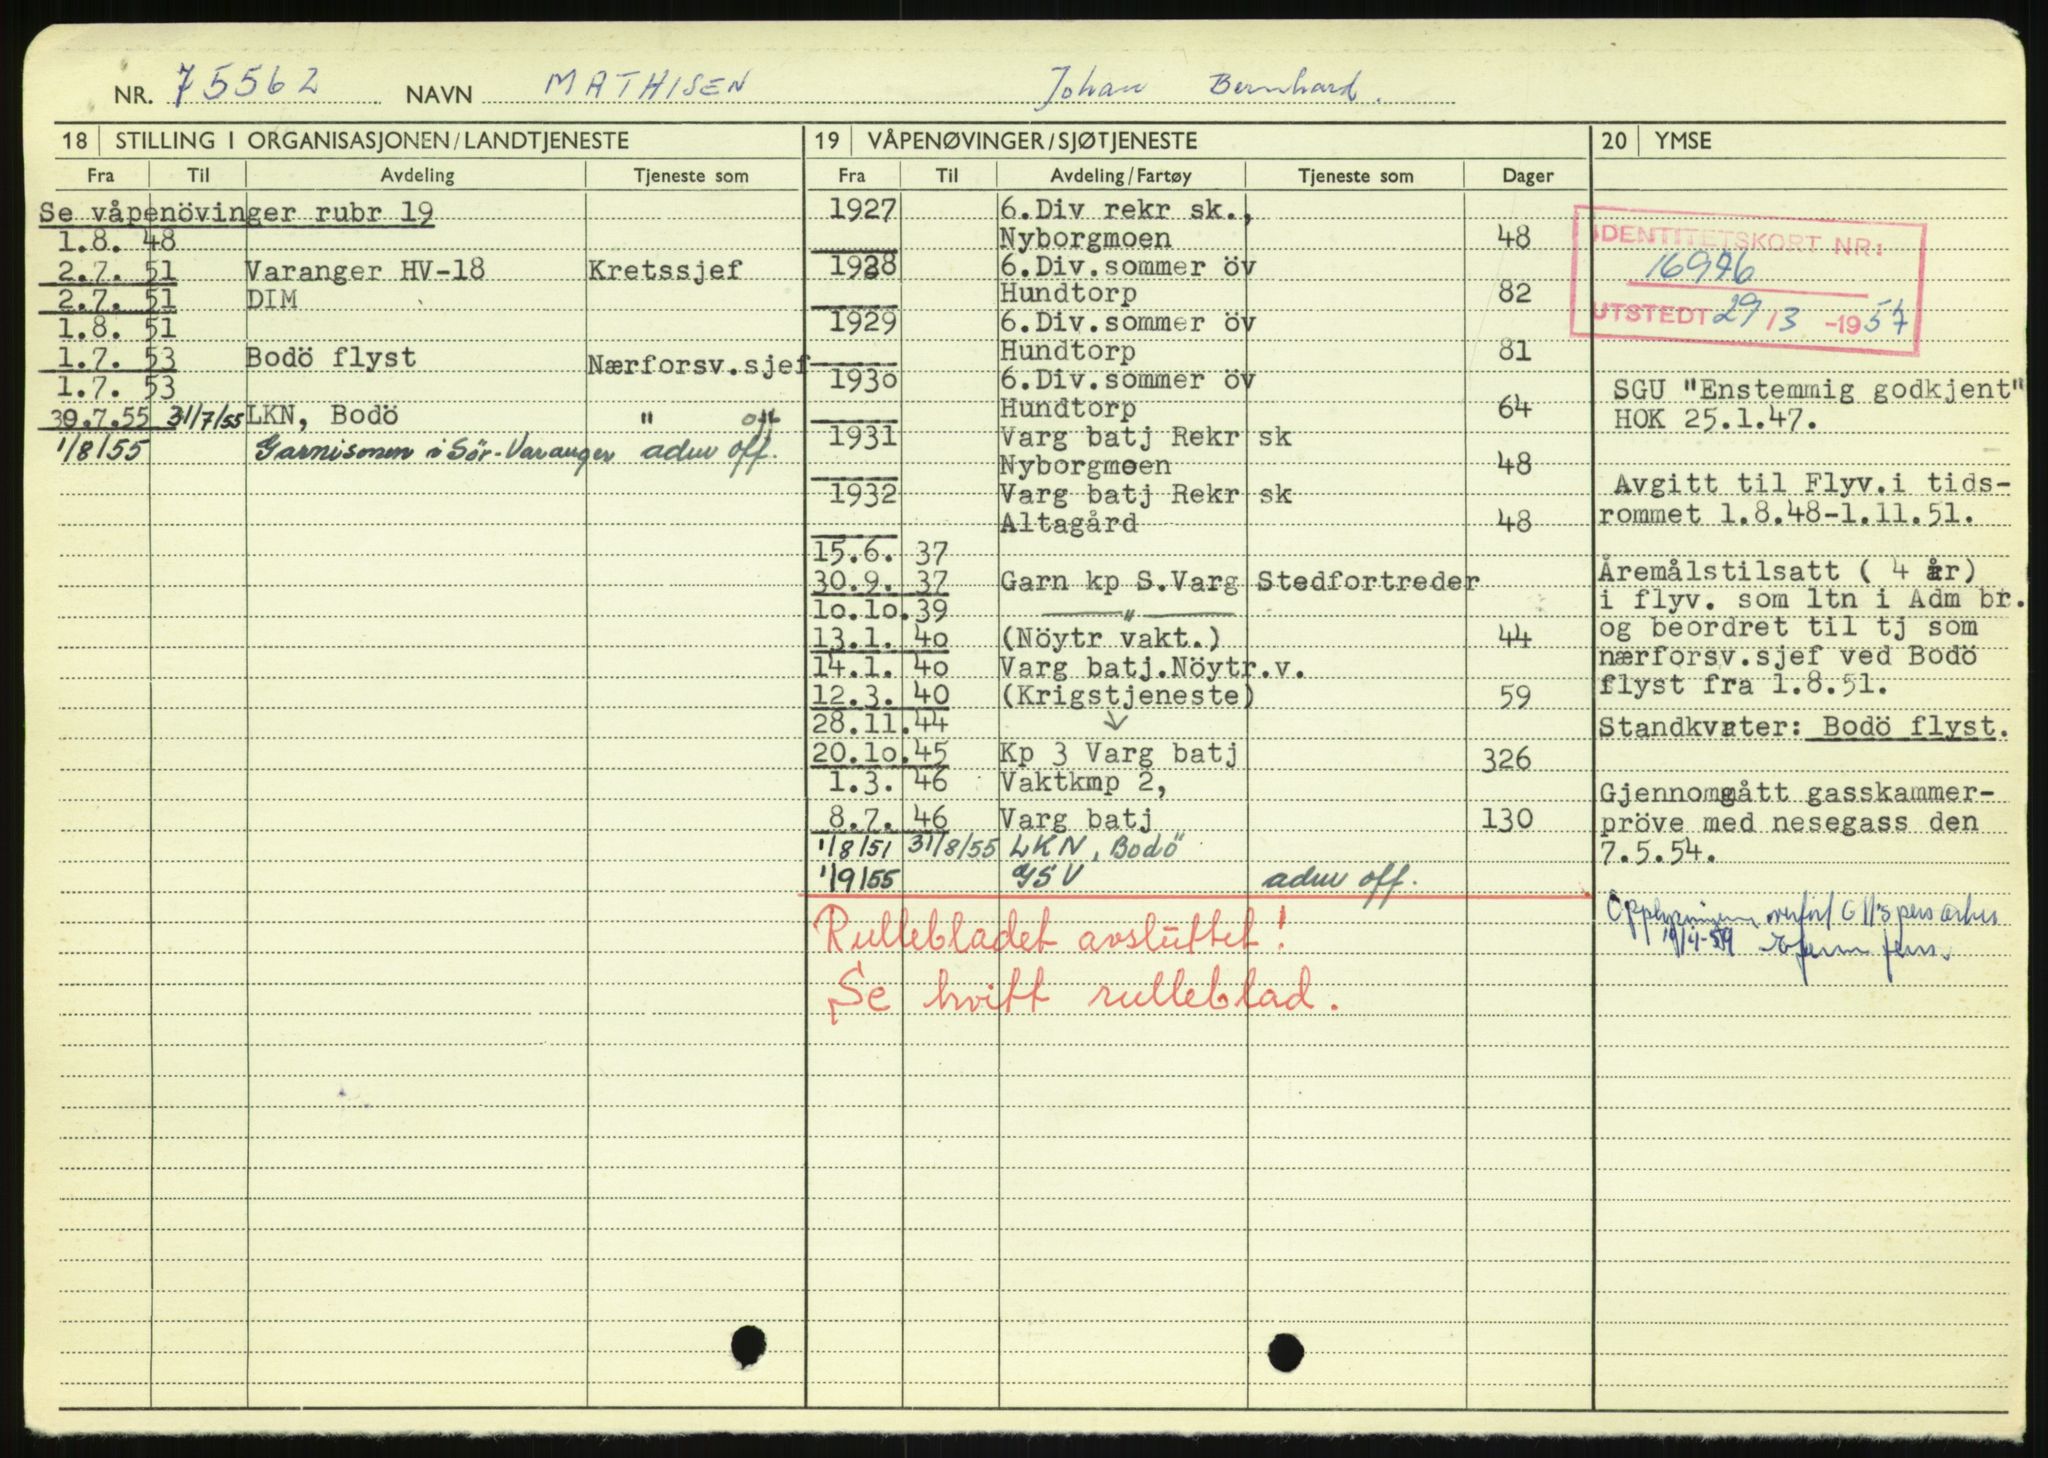 NR. 75562 NAVN MATHISEN Johan Bernhard.
18 STILLING I ORGANISASJONEN/LANDTJENESTE
Fra Til Avdeling Tjeneste som
Se våpenövinger rubr 19
1.8. 48
2.7. 51 Varanger HV-18 Kretssjef
2.7. 51 DIM
1.8. 51
1.7. 53 Bodö flyst Nærforsv.sjef
1.7. 53
30.7.55 31/7/55 LKN, Bodö " off
1/8/55 Garnisonen i Sör-Varanger adm off.
19 VÅPENØVINGER/SJØTJENESTE
Fra Til Avdeling/Fartøy Tjeneste som Dager
1927 6.Div rekr sk.,
Nyborgmoen 48
1928 6.Div.sommer öv
Hundtorp 82
1929 6.Div.sommer öv
Hundtorp 81
1930 6.Div.sommer öv
Hundtorp 64
1931 Varg batj Rekr sk
Nyborgmoen 48
1932 Varg batj Rekr sk
Altagård 48
15.6. 37
30.9. 37 Garn kp S.Varg Stedfortreder
10.10.39 "
13.1. 40 (Nöytr vakt.) 44
14.1. 40 Varg batj.Nöytr.v.
12.3. 40 (Krigstjeneste) 59
28.11.44
20.10.45 Kp 3 Varg batj 326
1.3. 46 Vaktkmp 2,
8.7. 46 Varg batj 130
1/8/51 31/8/55 LKN, Bodö
1/9/55 GSV adm off.
Rullebladet avsluttet!
Se hvitt rulleblad.
20 YMSE
IDENTITETSKORT NR:
16976
UTSTEDT 29/3 -1957
SGU "Enstemmig godkjent"
HOK 25.1.47.
Avgitt til Flyv.i tids-
rommet 1.8.48-1.11.51.
Åremålstilsatt ( 4 år)
i flyv. som ltn i Adm br.
og beordret til tj som
nærforsv.sjef ved Bodö
flyst fra 1.8.51.
Standkvrter: Bodö flyst.
Gjennomgått gasskammer-
pröve med nesegass den
7.5.54.
Opplysningene overfört